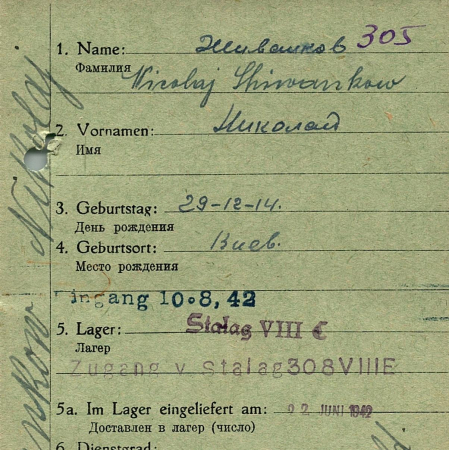 1. Name: Живанков 305
Фамилия
Nicolaj Shiwankow
2. Vornamen: Николай
Имя
3. Geburtstag: 29-12-14.
День рождения
4. Geburtsort: Киев.
Место рождения
ingang 10.8,42
5. Lager: Stalag VIII C
Лагер
Zugang v Stalag 308 VIIIE
5a. Im Lager eingeliefert am: 02 JUNI 1942
Доставлен в лагер (число)
6. Dienstgrad:
Nikolaj